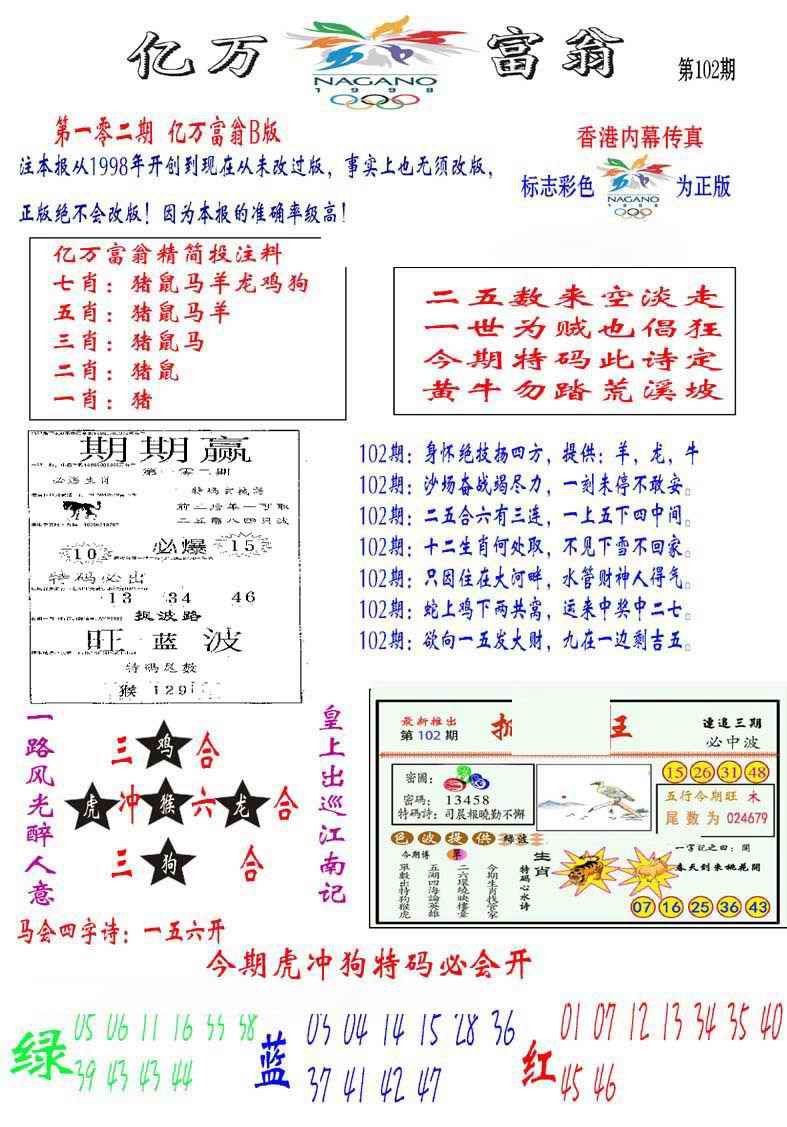 亿万富翁
NAGANO
1998
第102期
第一零二期 亿万富翁B版
注本报从1998年开创到现在从未改过版，事实上也无须改版，
正版绝不会改版！因为本报的准确率级高！
香港内幕传真
标志彩色
NAGANO
1998
为正版
亿万富翁精简投注料
七肖：猪鼠马羊龙鸡狗
五肖：猪鼠马羊
三肖：猪鼠马
二肖：猪鼠
一肖：猪
二五数来空淡走
一世为贼也倡狂
今期特码此诗定
黄牛勿踏荒溪坡
期期赢
第一零二期
必选生肖
前二跨年一可取
二五需八四只波
10
必爆
15
特码必出
13 34 46
捉波路
旺 蓝 波
特码尾数
猴 129
102期：身怀绝技扬四方，提供：羊，龙，牛
102期：沙场奋战竭尽力，一刻未停不敢安。
102期：二五合六有三连，一上五下四中间。
102期：十二生肖何处取，不见下雪不回家。
102期：只因住在大河畔，水管财神人得气。
102期：蛇上鸡下两共窝，运来中奖中二七。
102期：欲向一五发大财，九在一边剩吉五。
一路风光醉人意
三 鸡 合
虎 冲 猴 六 龙 合
三 狗 合
皇上出巡江南记
最新推出
第 102 期
王
連追三期
必中波
密圖：
密碼： 13458
特碼詩：司晨報曉勤不懈
15 26 31 48
五行今期旺 木
尾數为 024679
色波提供 綠波
今期博 單
單數出特狗猴虎
五湖四海論英雄
二六環繞映樓臺
今期生肖找管家
特碼心水诗
生肖
一字記之曰：開
春天到來桃花開
07 16 25 36 43
马会四字诗：一五六开
今期虎冲狗特码必会开
绿
05 06 11 16 33 38
39 43 43 44
蓝
03 04 14 15 28 36
37 41 42 47
红
01 07 12 13 34 35 40
45 46